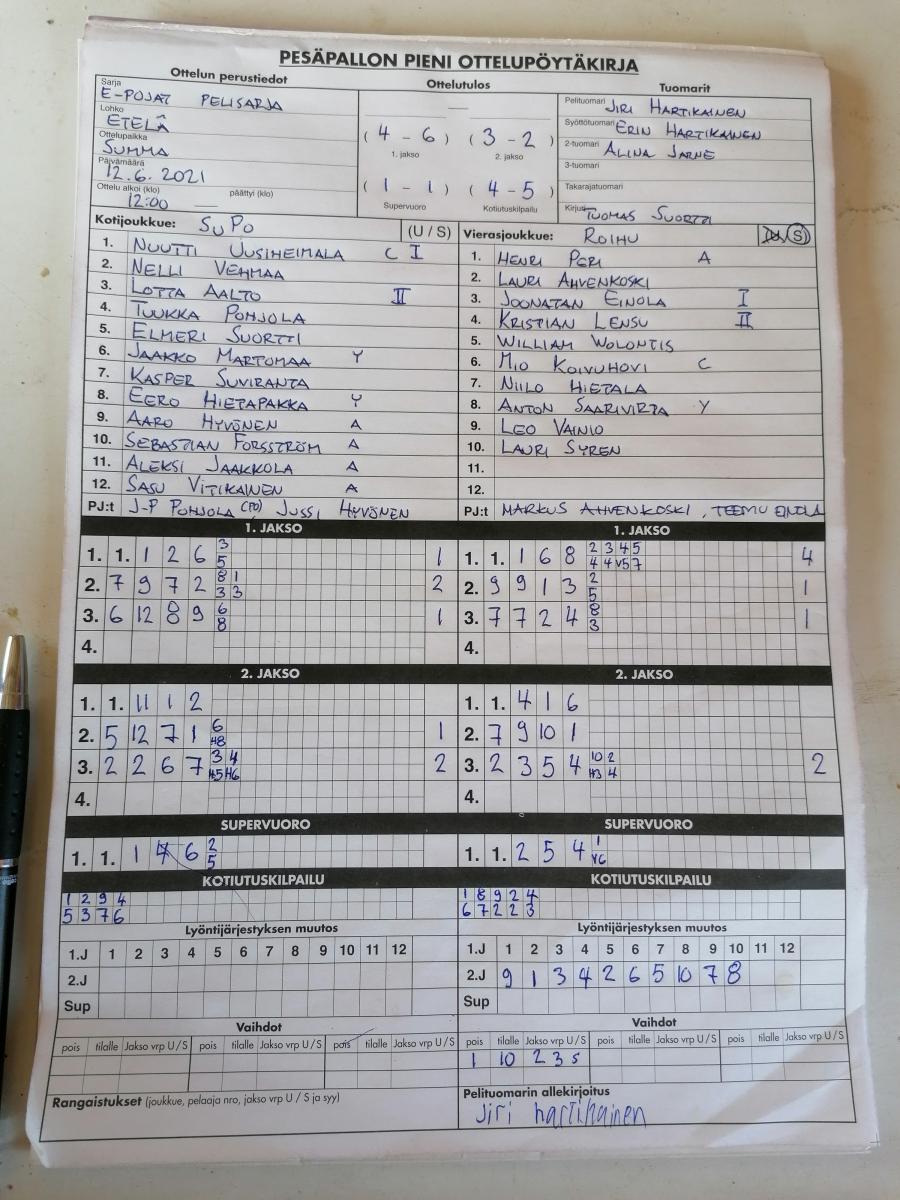 PESÄPALLON PIENI OTTELUPÖYTÄKIRJA
Ottelun perustiedot Ottelutulos Tuomarit
Sarja
E-POJAT PELISARJA
Lohko
ETELÄ
Ottelupaikka
SUMMA
Päivämäärä
12.6. 2021
Ottelu alkoi (klo) päättyi (klo)
12:00
( 4 - 6 ) ( 3 - 2 )
1. jakso 2. jakso
( 1 - 1 ) ( 4 - 5 )
Supervuoro Kotiutuskilpailu
Pelituomari JIRI HARTIKAINEN
Syöttötuomari ERIN HARTIKAINEN
2-tuomari ALINA JARNE
3-tuomari
Takarajatuomari
Kirjuri TUOMAS SUORTTI
Kotijoukkue: SuPo (U / S)
1. NUUTTI UUSIHEIMALA C I
2. NELLI VEHMAA
3. LOTTA AALTO II
4. TUUKKA POHJOLA
5. ELMERI SUORTTI
6. JAAKKO MARTOMAA Y
7. KASPER SUVIRANTA
8. EERO HIETAPAKKA Y
9. AARO HYVÖNEN A
10. SEBASTIAN FORSSTRÖM A
11. ALEKSI JAAKKOLA A
12. SASU VITIKAINEN A
PJ:t J-P POHJOLA (PJ) JUSSI HYVÖNEN
Vierasjoukkue: ROIHU (U / S)
1. HENRI PERI A
2. LAURI AHVENKOSKI
3. JOONATAN EINOLA I
4. KRISTIAN LENSU II
5. WILLIAM WOLONTIS
6. MIO KOIVUHOVI C
7. NIILO HIETALA
8. ANTON SAARIVIRTA Y
9. LEO VAINIO
10. LAURI SYREN
11.
12.
PJ:t MARKUS AHVENKOSKI, TEEMU EINOLA
1. JAKSO
1. 1. 1 2 6 3 1
5
2. 7 9 7 2 8 1 2
3 3
3. 6 12 8 9 6 1
8
4.
1. JAKSO
1. 1. 1 6 8 2 3 4 5 4
4 4 V5 7
2. 9 9 1 3 2 1
5
3. 7 7 2 4 8 1
3
4.
2. JAKSO
1. 1. 11 1 2
2. 5 12 7 1 6 1
H8
3. 2 2 6 7 3 4 2
H5 H6
4.
2. JAKSO
1. 1. 4 1 6
2. 7 9 10 1
3. 2 3 5 4 10 2 2
H3 4
4.
SUPERVUORO
1. 1. 1 6 2
5
SUPERVUORO
1. 1. 2 5 4 1
V6
KOTIUTUSKILPAILU
1 2 9 4
5 3 7 6
KOTIUTUSKILPAILU
1 8 9 2 4
6 7 2 2 3
Lyöntijärjestyksen muutos
1.J 1 2 3 4 5 6 7 8 9 10 11 12
2.J
Sup
Lyöntijärjestyksen muutos
1.J 1 2 3 4 5 6 7 8 9 10 11 12
2.J 9 1 3 4 2 6 5 10 7 8
Sup
Vaihdot
pois tilalle Jakso vrp U / S pois tilalle Jakso vrp U / S pois tilalle Jakso vrp U / S
Vaihdot
pois tilalle Jakso vrp U / S pois tilalle Jakso vrp U / S pois tilalle Jakso vrp U / S
1 10 2 3 S
Rangaistukset (joukkue, pelaaja nro, jakso vrp U / S ja syy)
Pelituomarin allekirjoitus
Jiri hartikainen